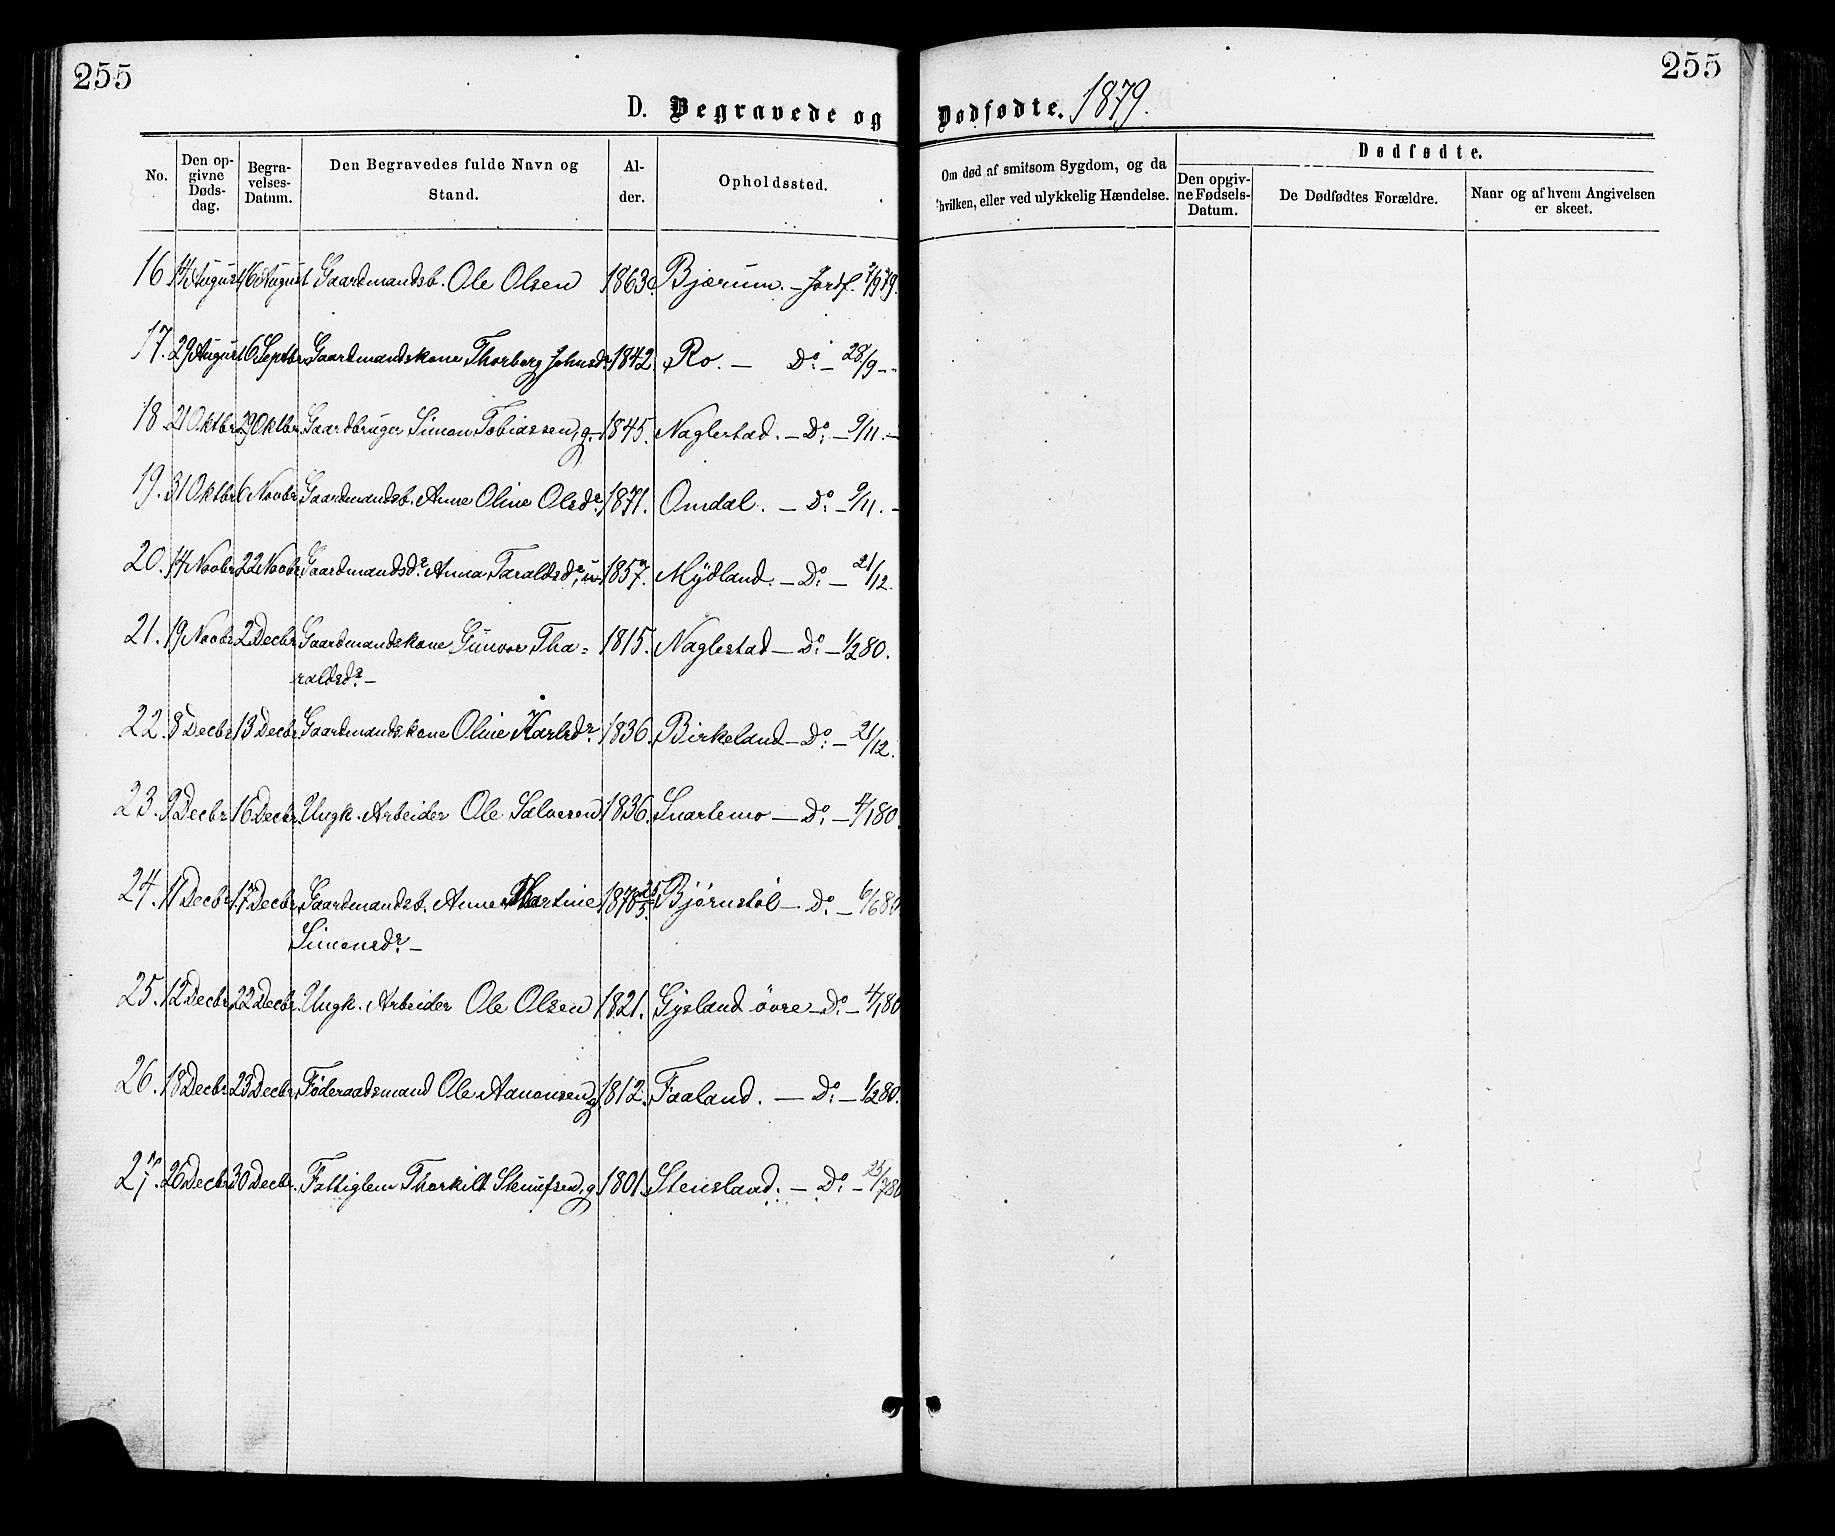 255
255
D. Begravede og Dødfødte. 1879.
No.
Den opgivne Dødsdag.
Begravelses-Datum.
Den Begravedes fulde Navn og Stand.
Alder.
Opholdssted.
Om død af smitsom Sygdom, og da hvilken, eller ved ulykkelig Hændelse.
Dødfødte.
Den opgivne Fødsels-Datum.
De Dødfødtes Forældre.
Naar og af hvem Angivelsen er skeet.
16. 14 August 16 August Gaardmandsb. Ole Olsen 1863. Bjærum. – Jordf. 7/9 79.
17. 29 August 6 Septbr. Gaardmandskone Thorborg Johnsdr. 1842. Ro. – Do. – 28/9 –
18. 21 Oktbr. 29 Oktbr. Gaardbruger Simon Tobiassen, g. 1845. Naglestad. – Do. – 9/11. –
19. 31 Oktbr. 6 Novbr. Gaardmandsb. Anne Oline Olsdr. 1871. Omdal. – Do. – 9/11. –
20. 14 Novbr. 22 Novbr. Gaardmandsdr. Anna Taraldsdr., u. 1857. Mydland. – Do. – 21/12.
21. 19 Novbr. 2 Decbr. Gaardmandskone Gunvor Tha=
raldsdr. –
1815. Naglestad – Do. – 1/2 80.
22. 8 Decbr. 13 Decbr. Gaardmandskone Oline Karlsdr. 1836. Birkeland – Do. – 21/12.
23. 9 Decbr. 16 Decbr. Ungk. Arbeider Ole Salvesen 1836. Snartemo – Do. – 4/1 80.
24. 11 Decbr. 17 Decbr. Gaardmandsb. Anne Martine
Simonsdr. –
1878 25/5. Bjørnstøl – Do. – 6/6 80
25. 12 Decbr. 22 Decbr. Ungk. Arbeider Ole Olsen 1821. Gysland övre – Do. – 4/1 80
26. 18 Decbr. 23 Decbr. Føderaadsmand Ole Aanonsen, g. 1812. Faaland. – Do. – 1/2 80.
27. 26 Decbr. 30 Decbr. Fattiglem Thorkild, g. 1801. Stensland. – Do. – 25/7 80